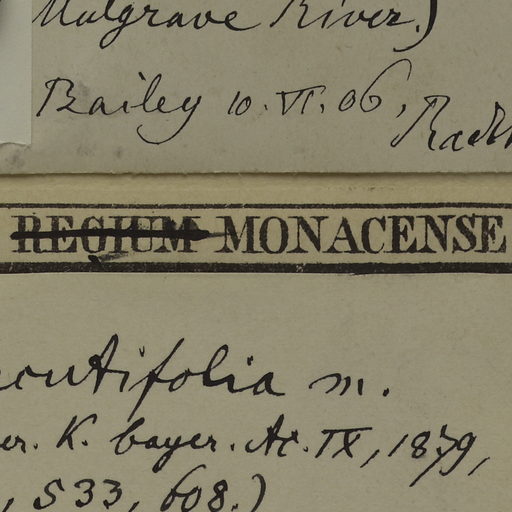 Mulgrave River.)
Bailey 10. VI. 06,
REGIUM MONACENSE
cutifolia m.
er. K. bayer. Ac. IX, 1879,
, 533, 608.)